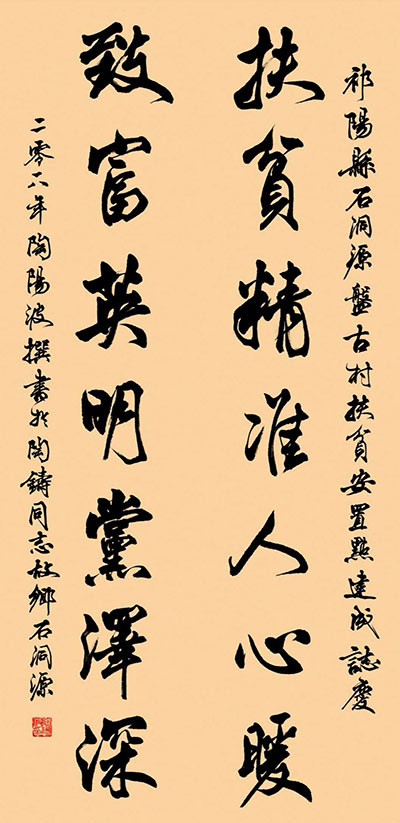 祁陽縣石洞源盤古村扶貧安置點建成誌慶
扶貧精准人心暖
致富英明黨澤深
二零一八年陶陽波撰書於陶鑄同志故鄉石洞源